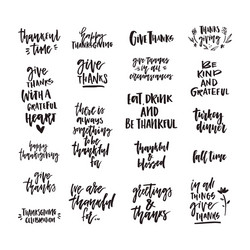 thankful
time
happy
Thanksgiving
GIVE THANKS
THANKS
giving
give
THANKS
WITH A
GRATEFUL
HEART
give
THANKS
give thanks
in all
circumstances
BE
KIND
AND
GRATEFUL
there is
always
something
to be
thankful
for
EAT, DRINK
AND
BE THANKFUL
turkey
dinner
happy
thanksgiving
thankful
&
blessed
fall time
give
thanks
THANKSGIVING
CELEBRATION
we are
thankful
for...
greetings
&
thanks
in all
THINGS
give
THANKS